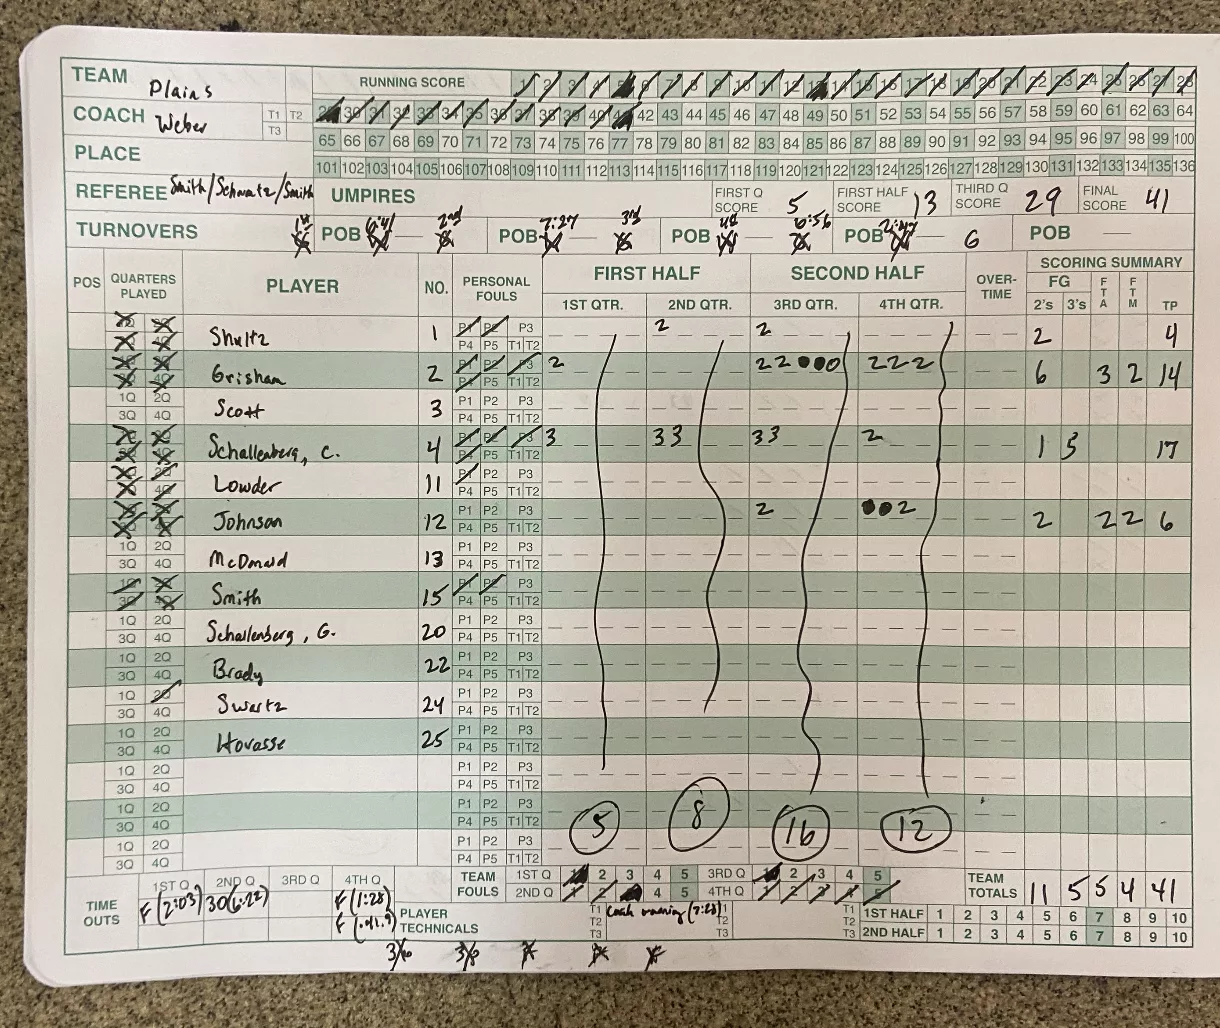 TEAM Plains RUNNING SCORE 1 2 3 4 5 6 7 8 9 10 11 12 13 14 15 16 17 18 19 20 21 22 23 24 25 26 27 28
COACH Weber T1 T2 T3 29 30 31 32 33 34 35 36 37 38 39 40 41 42 43 44 45 46 47 48 49 50 51 52 53 54 55 56 57 58 59 60 61 62 63 64
65 66 67 68 69 70 71 72 73 74 75 76 77 78 79 80 81 82 83 84 85 86 87 88 89 90 91 92 93 94 95 96 97 98 99 100
PLACE 101 102 103 104 105 106 107 108 109 110 111 112 113 114 115 116 117 118 119 120 121 122 123 124 125 126 127 128 129 130 131 132 133 134 135 136
REFEREE Smith/Schwartz/Smith UMPIRES FIRST Q SCORE 5 FIRST HALF SCORE 13 THIRD Q SCORE 29 FINAL SCORE 41
1st 2nd 7:27 3rd 4th 6:56
TURNOVERS POB POB POB POB 6 POB
POS QUARTERS PLAYED PLAYER NO. PERSONAL FOULS FIRST HALF SECOND HALF OVER-TIME SCORING SUMMARY
1ST QTR. 2ND QTR. 3RD QTR. 4TH QTR. FG 2's 3's FTA FTM TP
Shultz 1 P1 P2 P3 P4 P5 T1 T2 2 2 2 4
Grisham 2 P1 P2 P3 P4 P5 T1 T2 2 22●●0 222 6 3 2 14
1Q 2Q 3Q 4Q Scott 3 P1 P2 P3 P4 P5 T1 T2
Schallenberg, C. 4 P1 P2 P3 P4 P5 T1 T2 3 33 33 2 1 5 17
Lowder 11 P1 P2 P3 P4 P5 T1 T2
Johnson 12 P1 P2 P3 P4 P5 T1 T2 2 ●●2 2 2 2 6
1Q 2Q 3Q 4Q McDonald 13 P1 P2 P3 P4 P5 T1 T2
Smith 15 P1 P2 P3 P4 P5 T1 T2
1Q 2Q 3Q 4Q Schallenberg, G. 20 P1 P2 P3 P4 P5 T1 T2
1Q 2Q 3Q 4Q Brady 22 P1 P2 P3 P4 P5 T1 T2
1Q 2Q 3Q 4Q Swartz 24 P1 P2 P3 P4 P5 T1 T2
1Q 2Q 3Q 4Q Hovasse 25 P1 P2 P3 P4 P5 T1 T2
1Q 2Q 3Q 4Q P1 P2 P3 P4 P5 T1 T2
1Q 2Q 3Q 4Q P1 P2 P3 P4 P5 T1 T2
1Q 2Q 3Q 4Q P1 P2 P3 P4 P5 T1 T2
5 8 16 12
TIME OUTS 1ST Q 2ND Q 3RD Q 4TH Q
F (2:03) F (1:28)
TEAM FOULS 1ST Q 1 2 3 4 5 3RD Q 1 2 3 4 5
2ND Q 1 2 3 4 5 4TH Q 1 2 3 4 5
TEAM TOTALS 11 5 5 4 41
PLAYER TECHNICALS T1 T2 T3 T1 T2 T3 T1 T2 T3
1ST HALF 1 2 3 4 5 6 7 8 9 10
2ND HALF 1 2 3 4 5 6 7 8 9 10